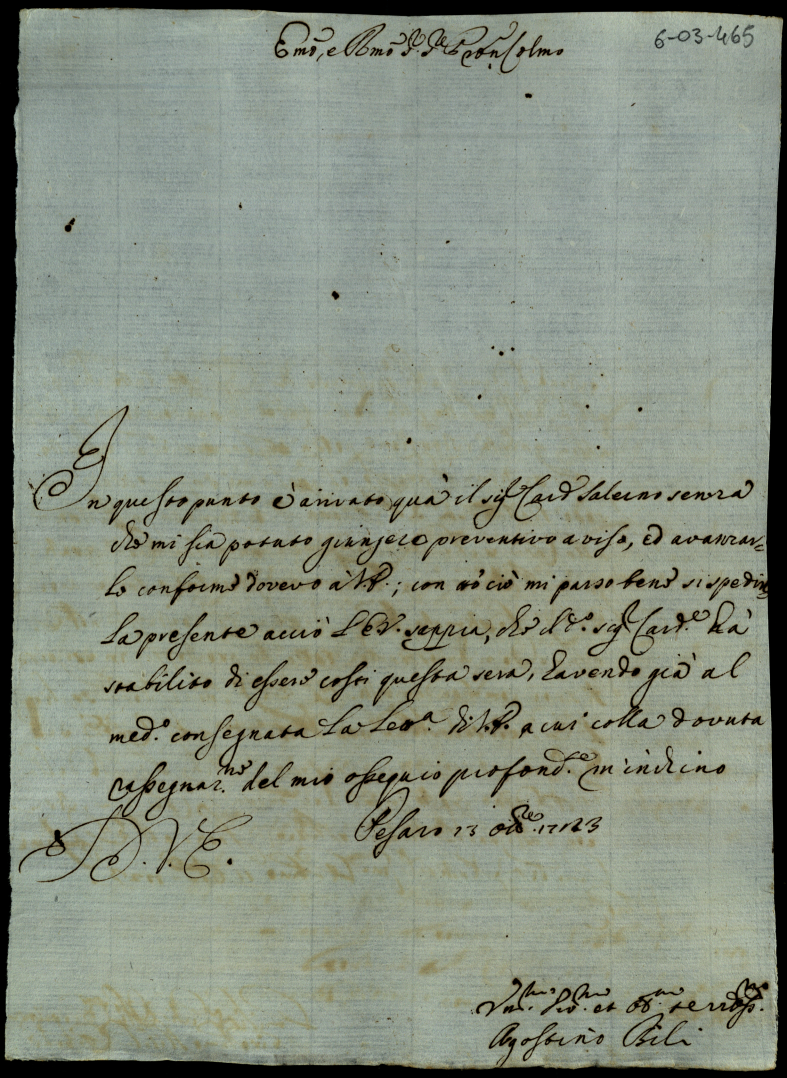 6-03-465
Emo, e Rmo Sr. Sr. Pron Colmo
In questo punto è arivato quà il sigr Card Salerno senza
che mi sia potuto giungere preventivo aviso, ed avanzar=
lo conforme dovevo à V.E.; con tt.o ciò mi parso bene si spedir
la presente acciò l'E.V. sappia, che il d.o sigr Card.e hà
stabilito di essere costì questa sera, havendo già al
med.o consegnata la Lettra di V.E. a cui colla dovuta
rassegnaz.ne del mio ossequio profond.e m'inchino
D. V. E.
Pesaro 13 8bre 1723
Um. Div. et Ob. serv
Agostino Bili